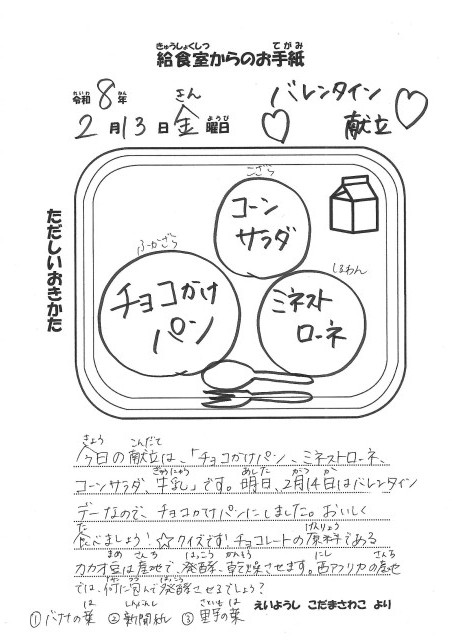 給食室からのお手紙
令和8年
2月13日金曜日
バレンタイン
献立
ただしいおきかた
こざら
コーン
サラダ
ふかざら
チョコかけ
パン
しるわん
ミネスト
ローネ
今日の献立は、「チョコかけパン、ミネストローネ、
コーンサラダ、牛乳」です。明日、2月14日はバレンタイン
デーなので、チョコかけパンにしました。おいしく
食べましょう!☆クイズです!チョコレートの原料である
カカオ豆は産地で、発酵、乾燥させます。西アフリカの産地
では、何に包んで発酵させるでしょう?
えいようし こだまさわこ より
①バナナの葉 ②新聞紙 ③里芋の葉